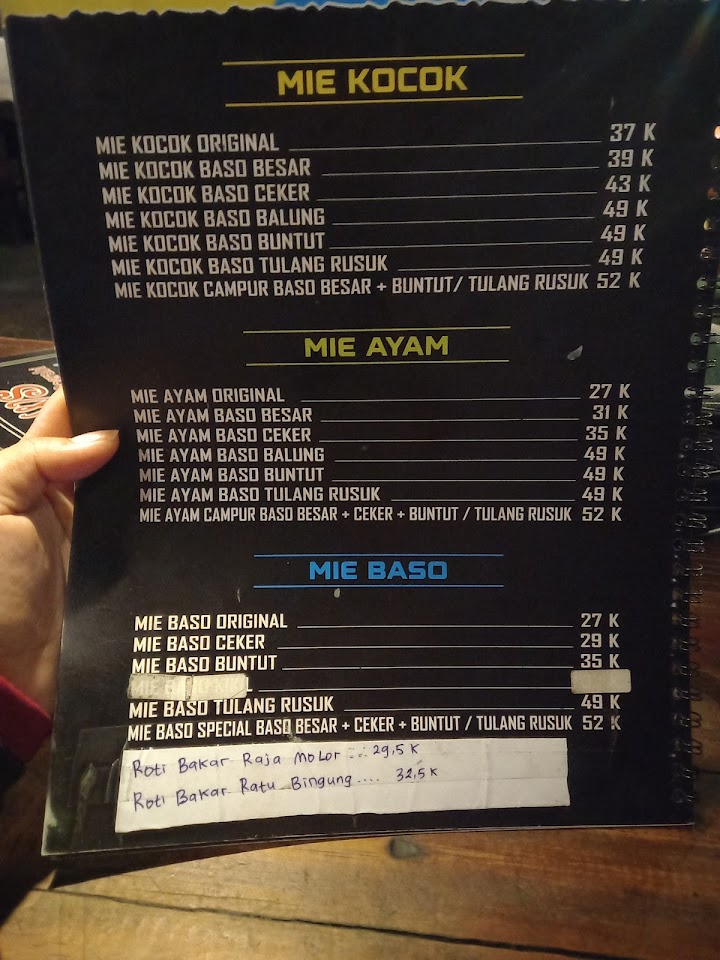 MIE KOCOK
MIE KOCOK ORIGINAL 37 K
MIE KOCOK BASO BESAR 39 K
MIE KOCOK BASO CEKER 43 K
MIE KOCOK BASO BALUNG 49 K
MIE KOCOK BASO BUNTUT 49 K
MIE KOCOK BASO TULANG RUSUK 49 K
MIE KOCOK CAMPUR BASO BESAR + BUNTUT/ TULANG RUSUK 52 K
MIE AYAM
MIE AYAM ORIGINAL 27 K
MIE AYAM BASO BESAR 31 K
MIE AYAM BASO CEKER 35 K
MIE AYAM BASO BALUNG 49 K
MIE AYAM BASO BUNTUT 49 K
MIE AYAM BASO TULANG RUSUK 49 K
MIE AYAM CAMPUR BASO BESAR + CEKER + BUNTUT / TULANG RUSUK 52 K
MIE BASO
MIE BASO ORIGINAL 27 K
MIE BASO CEKER 29 K
MIE BASO BUNTUT 35 K
MIE BASO TULANG RUSUK 49 K
MIE BASO SPECIAL BASO BESAR + CEKER + BUNTUT / TULANG RUSUK 52 K
Roti Bakar Raja Molor ... 29,5 K
Roti Bakar Ratu Bingung .... 32,5 K